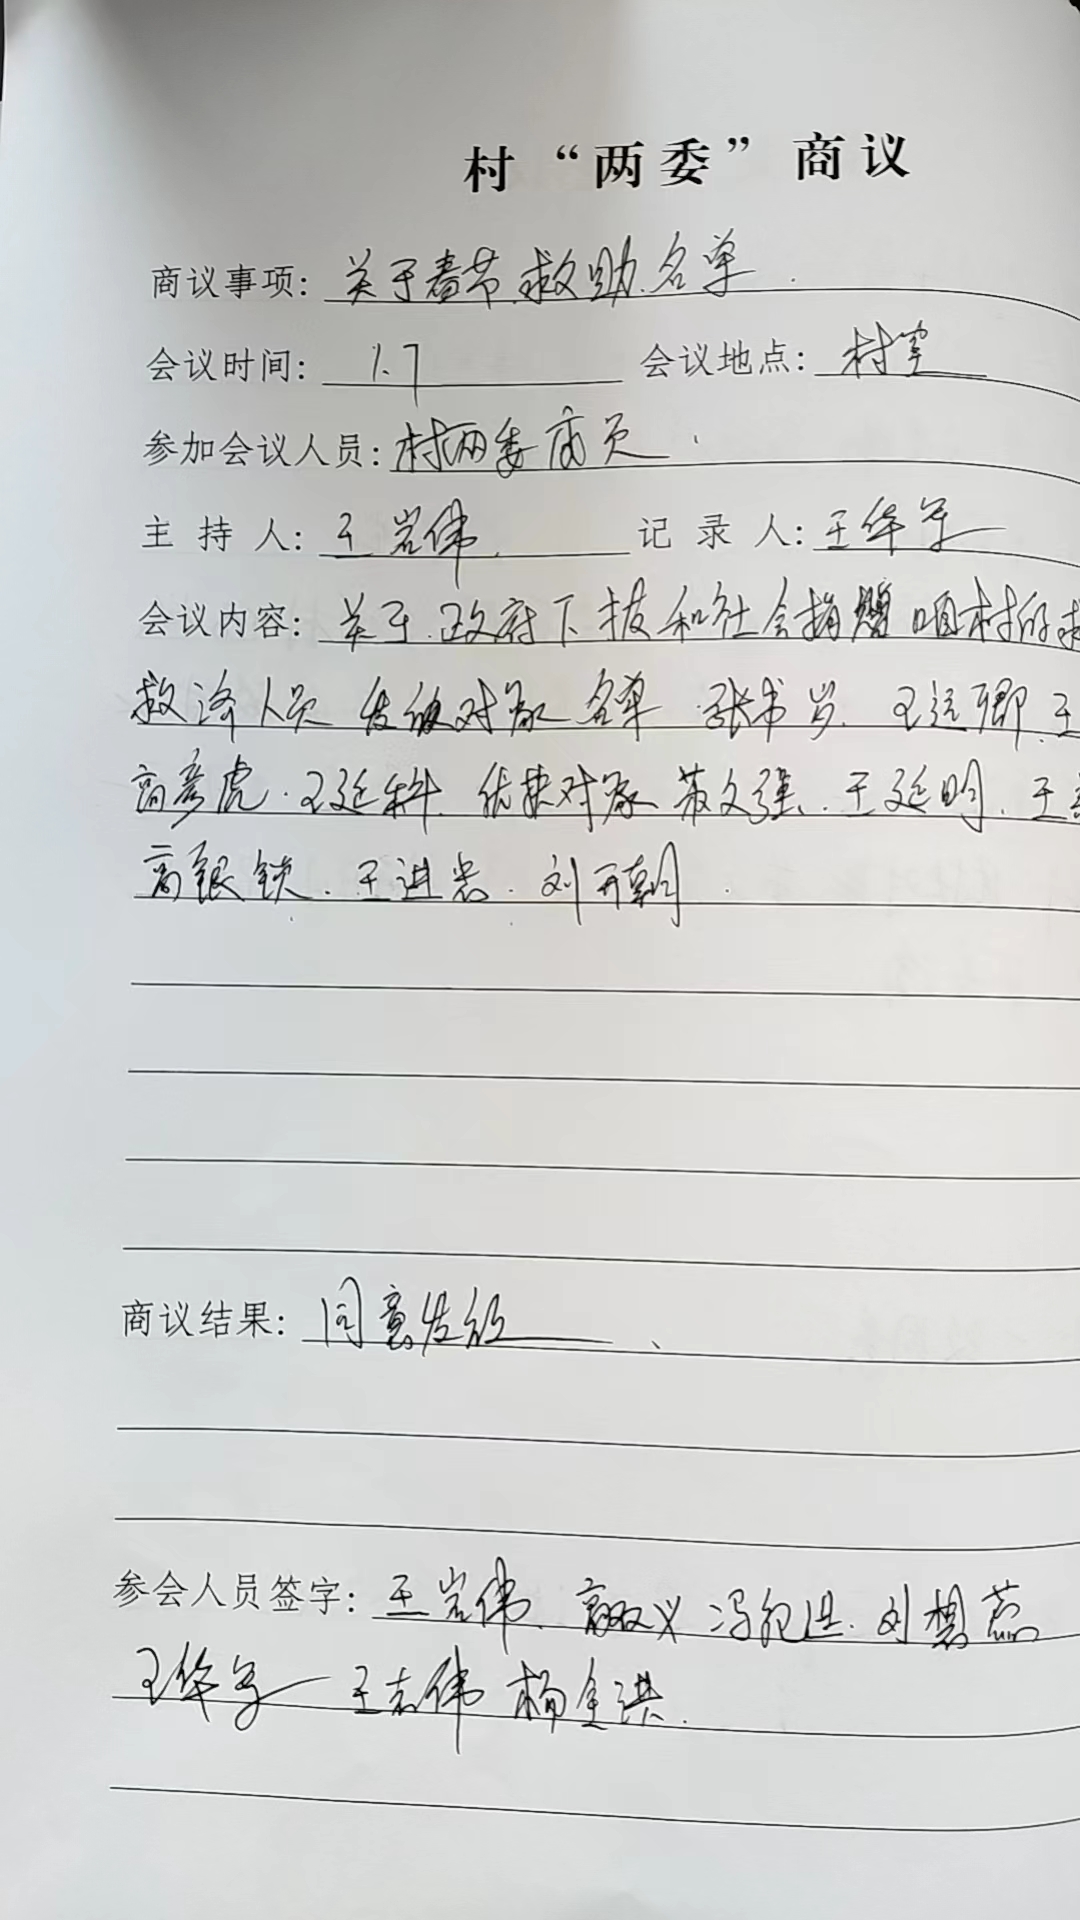 村“两委”商议
商议事项：关于春节救助名单
会议时间：1.7 会议地点：村室
参加会议人员：村两委成员
主持人：王岩伟 记录人：王华
会议内容：关于政府下拨和社会捐赠咱村的
救济人员发放对象名单 张书岁、王运卿、王
高彦虎、王延科 优扶对象 苏文强、王延明、王
高银锁、王进忠、刘开朝
商议结果：同意发放
参会人员签字：王岩伟 高双义 冯 进 刘
王华 王志伟 杨金洪